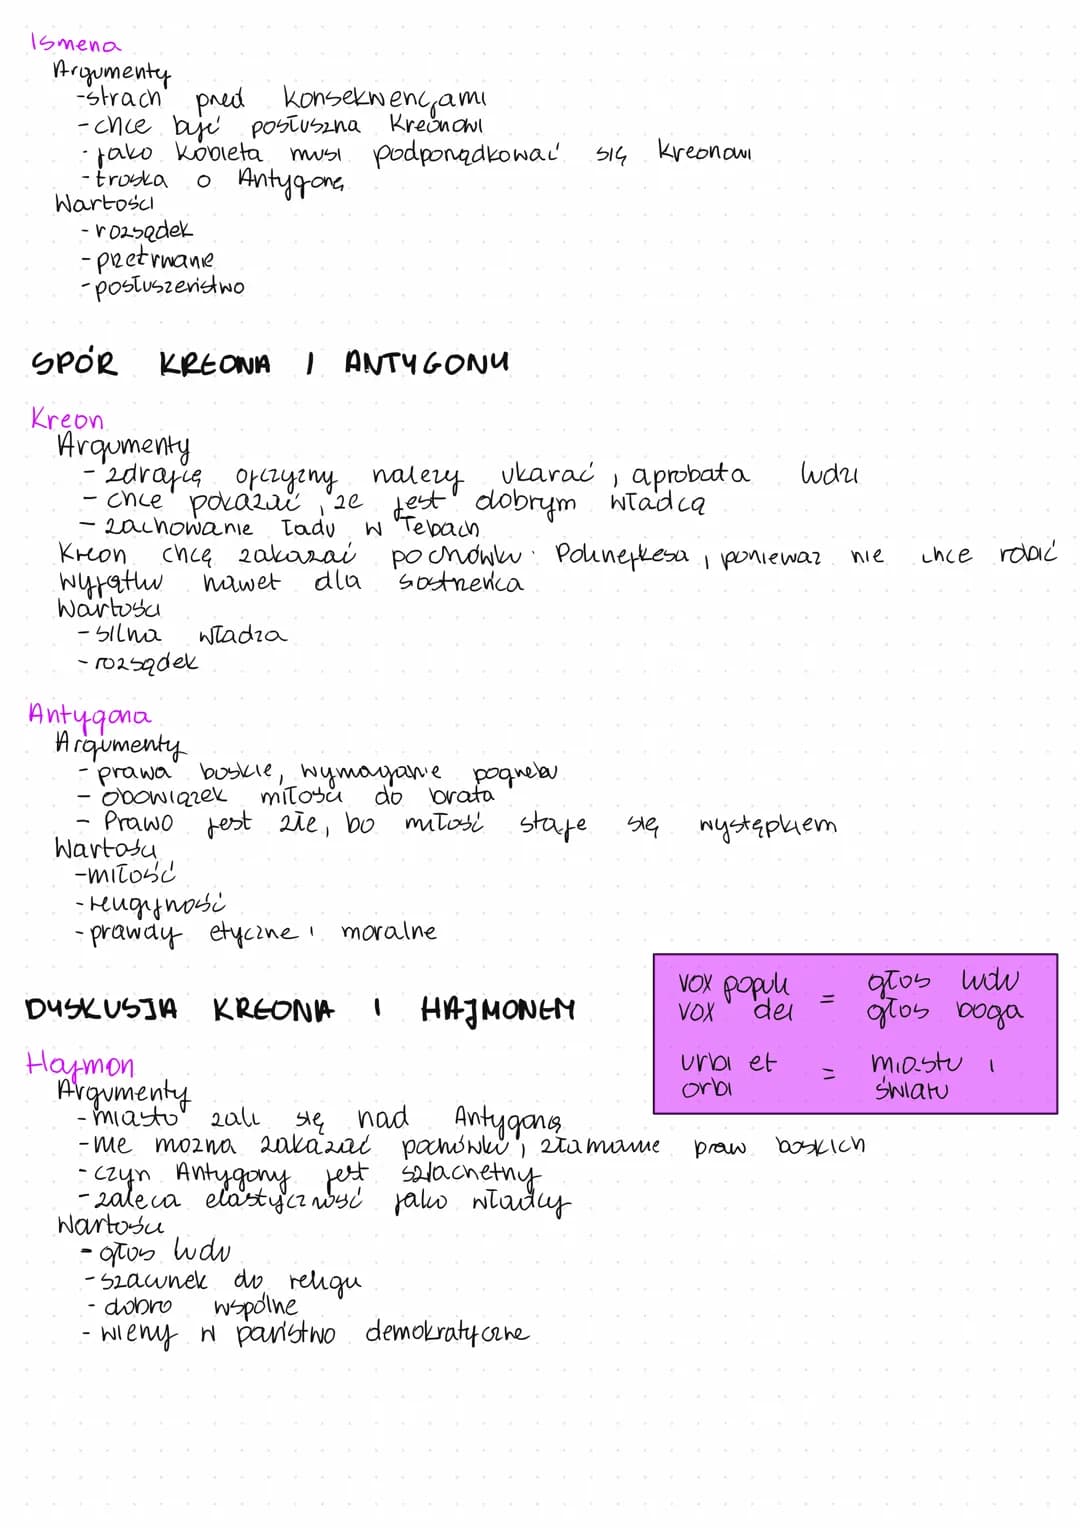 Ismena
Argumenty
-strach przed konsekwencjami
-chce być posłuszna Kreonowi
-jako kobieta musi podporządkować się Kreonowi
-troska o Antygonę
Wartości
-rozsądek
-przetrwanie
-posłuszeństwo
SPÓR KREONA I ANTYGONY
Kreon
Argumenty
-zdrajcę ojczyzny należy ukarać, aprobata ludzi
-chce pokazać, że jest dobrym władcą
-zachowanie ładu w Tebach
Kreon chcę zakazać pochówku Polinejkesa, ponieważ nie chce robić
wyjątku nawet dla siostrzeńca
Wartości
-silna władza
-rozsądek
Antygona
Argumenty
-prawa boskie, wymaganie pogrzebu
-obowiązek miłości do brata
-Prawo jest złe, bo miłość staje się występkiem
Wartości
-miłość
-religijność
-prawdy etyczne i moralne
vox populi = głos ludu
vox dei głos boga
urbi et = miastu i
orbi światu
DYSKUSJA KREONA I HAJMONEM
Hajmon
Argumenty
-miasto żali się nad Antygoną
-nie można zakazać pochówku, złamanie praw boskich
-czyn Antygony jest szlachetny
-zaleca elastyczność jako władcy
Wartości
-głos ludu
-szacunek do religii
-dobro wspólne
-wierzy w państwo demokratyczne